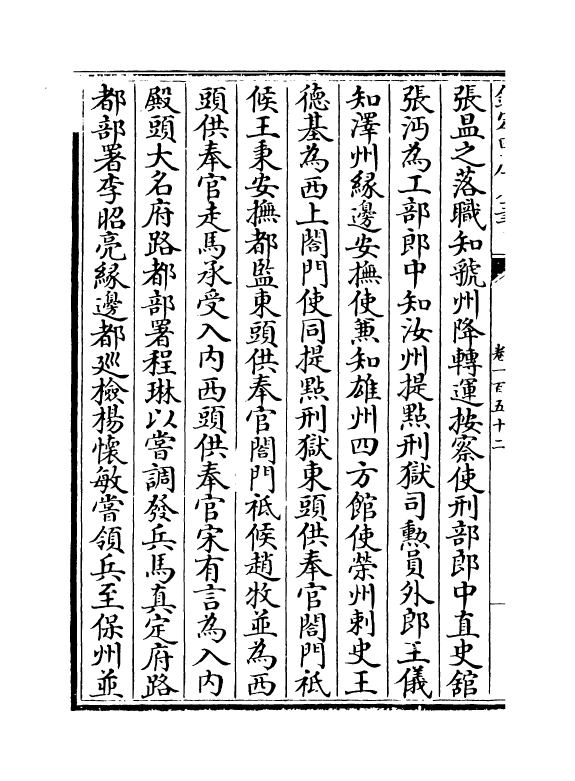 欽定四庫全書
卷一百五十二
張昷之落職知虢州降轉運按察使刑部郎中直史舘
張沔為工部郎中知汝州提點刑獄司勲員外郎王儀
知澤州緣邊安撫使兼知雄州四方館使榮州刺史王
德基為西上閤門使同提點刑獄東頭供奉官閤門祗
候王秉安撫都監東頭供奉官閤門祗候趙牧並為西
頭供奉官走馬承受入内西頭供奉官宋有言為入内
殿頭大名府路都部署程琳以嘗調發兵馬真定府路
都部署李昭亮緣邊都廵檢楊懷敏嘗領兵至保州並